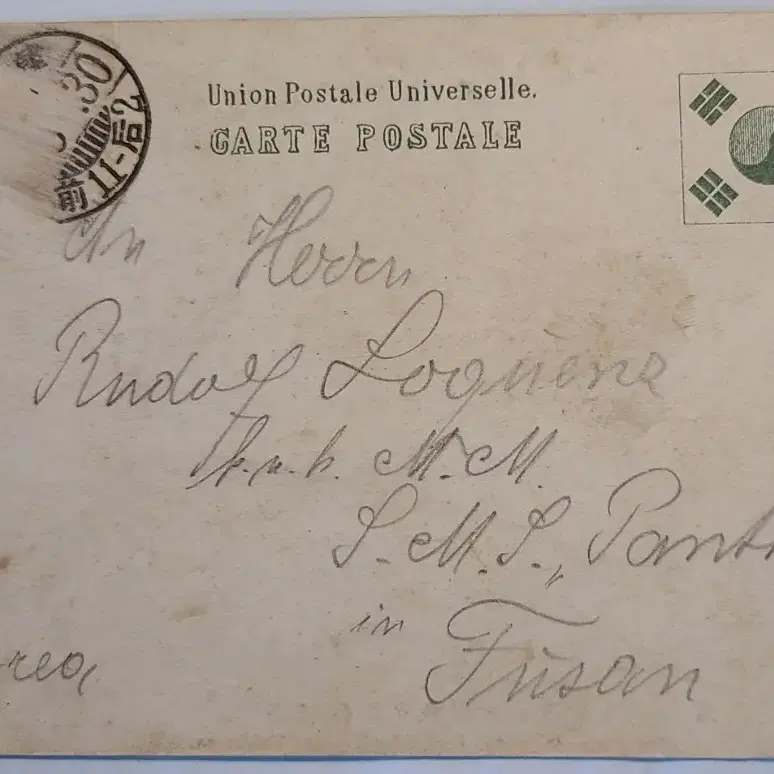 30
前11-后2
Union Postale Universelle.
CARTE POSTALE
An Herrn
Rudolf
k.u.k. M.M.
S.M.S. „Panth
in
rea, Fusan